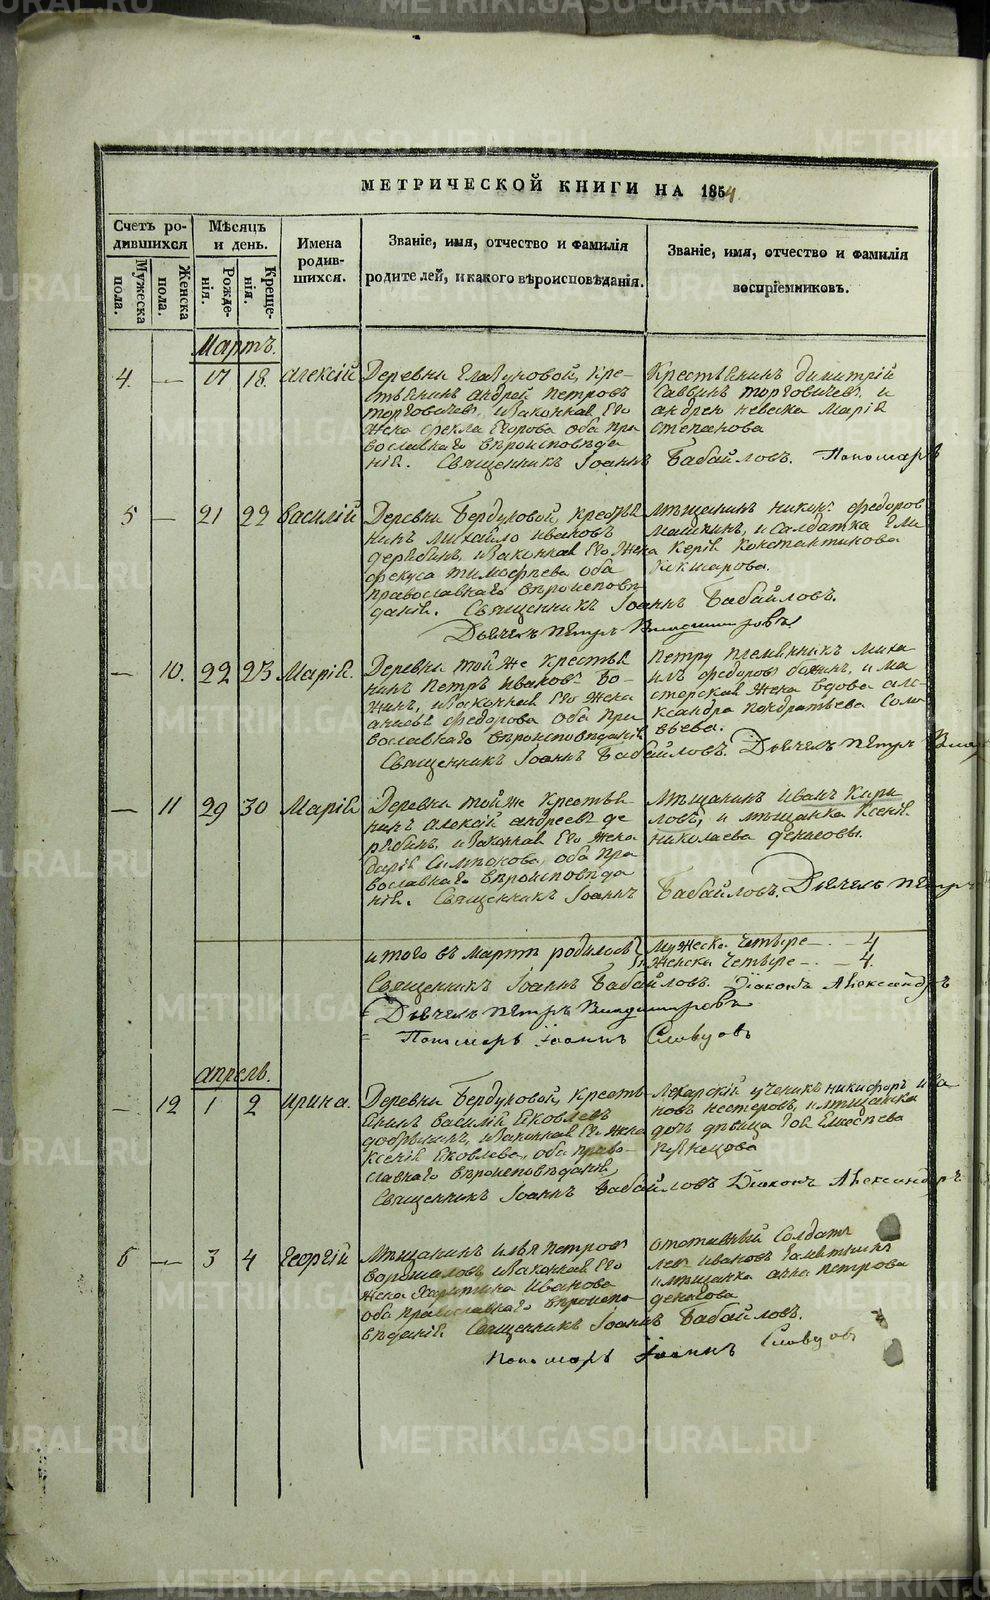 МЕТРИЧЕСКОЙ КНИГИ НА 1854.
Счетъ ро-
дившихся
Мѣсяцъ
и день.
Имена
родив-
шихся.
Званіе, имя, отчество и фамилія
родителей, и какого вѣроисповѣданія.
Званіе, имя, отчество и фамилія
воспріемниковъ.
Мужеска
пола.
Женска
пола.
Рожде-
нія.
Креще-
нія.
Мартъ.
4. — 17 18. Алексій Деревни кре-
стьянинъ Андрей Петровъ
Торговичевъ, и законная его
жена Фекла Егорова оба пра
вославнаго вѣроисповѣда
нія. Священникъ Іоаннъ Бабайловъ. Пономарь
Крестьянинъ Димитрій
Саввинъ Торговичевъ и
Андрею невеска Марія
Степанова
5 — 21 22 Василій Деревни Бердуковой, крестья
нинъ Михайло Ивановъ
Дерябинъ, и законная его жена
Тимофѣева оба
православнаго вѣроисповѣ
данія. Священникъ Іоаннъ Бабайловъ.
Дьячекъ Петръ
Мѣщанинъ Федоров
и салдатка Гли
керія Константинова
— 10. 22 23 Марія. Деревни той же крестья
нинъ Петръ Ивановъ Бо-
жинъ, и законная его жена
Федорова оба пра
вославнаго вѣроисповѣданія
Священникъ Іоаннъ Бабайловъ. Дьячекъ Петръ
Петру племянникъ Миха
илъ Федоровъ и ма
стерская жена вдова але-
ксандра Кондратьева Соло
вьева.
— 11 29 30 Марія. Деревни той же крестья
нинъ Алексій Андреевъ Де
рябинъ, и законная его жена
Дарія оба пра
вославнаго вѣроисповѣда
нія. Священникъ Іоаннъ Бабайловъ. Дьячекъ Петръ
Мѣщанинъ Иванъ Кири
ловъ, и мѣщанка Ксенія
Николаева
итого въ мартѣ родилось мужеска четыре — . — 4
женска четыре — . — 4.
Священникъ Іоаннъ Бабайловъ. Діаконъ Александръ
Дьячекъ Петръ
Пономарь Іоаннъ Словцовъ
апрель.
— 12 1 2 Ирина. Деревни Бердуковой, кресть-
янинъ Василій Яковлевъ
и законная его жена
Ксенія Яковлева, оба право-
славнаго вѣроисповѣданія,
Священникъ Іоаннъ Бабайловъ Діаконъ Александръ
Лекарскій ученикъ Никифоръ Ива
новъ Нестеровъ, и мѣщанска
дочь дѣвица
Кузнецова
5 — 3 4 Георгій Мѣщанинъ Илья Петровъ
и законная его
жена Харитина Иванова
оба православнаго вѣроиспо
вѣданія. Священникъ Іоаннъ Бабайловъ.
Пономарь Іоаннъ Словцовъ
отставный солдатъ
Ивановъ
и мѣщанка Анна Петрова